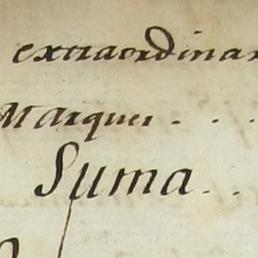 extraordinar
Marques . . .
Suma . .